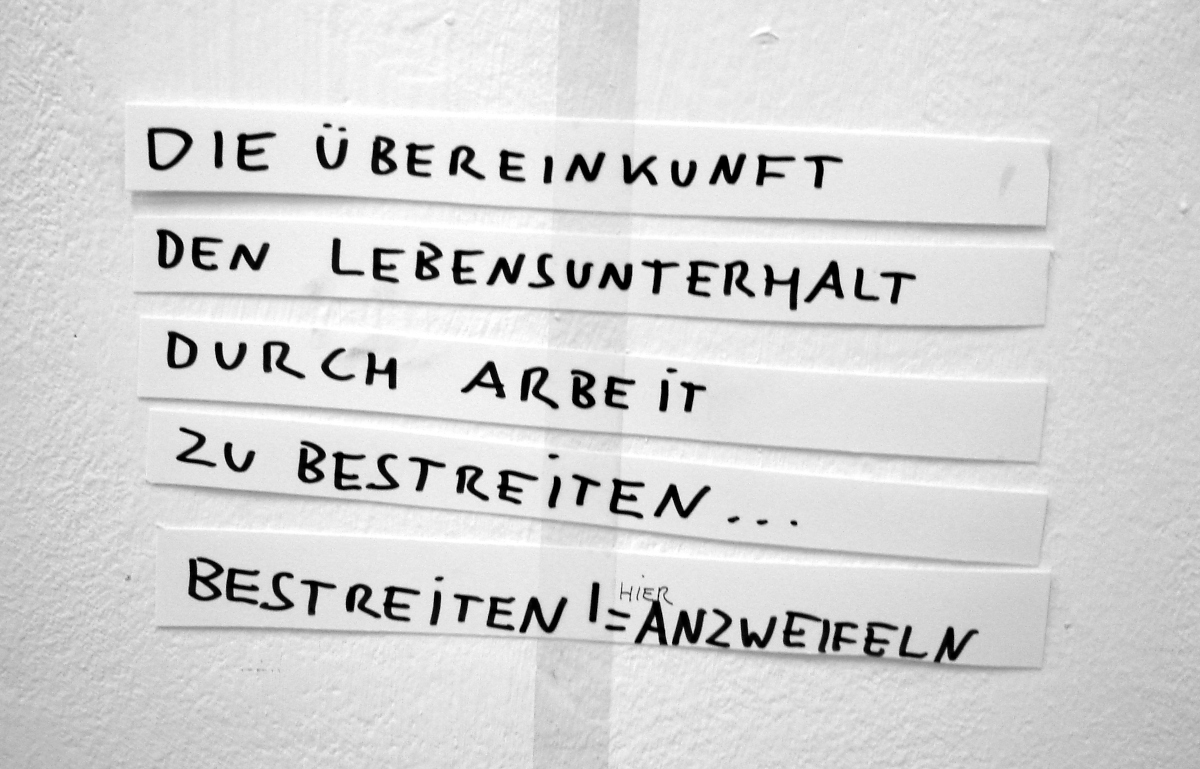 DIE ÜBEREINKUNFT
DEN LEBENSUNTERHALT
DURCH ARBEIT
ZU BESTREITEN...
HIER
BESTREITEN != ANZWEIFELN